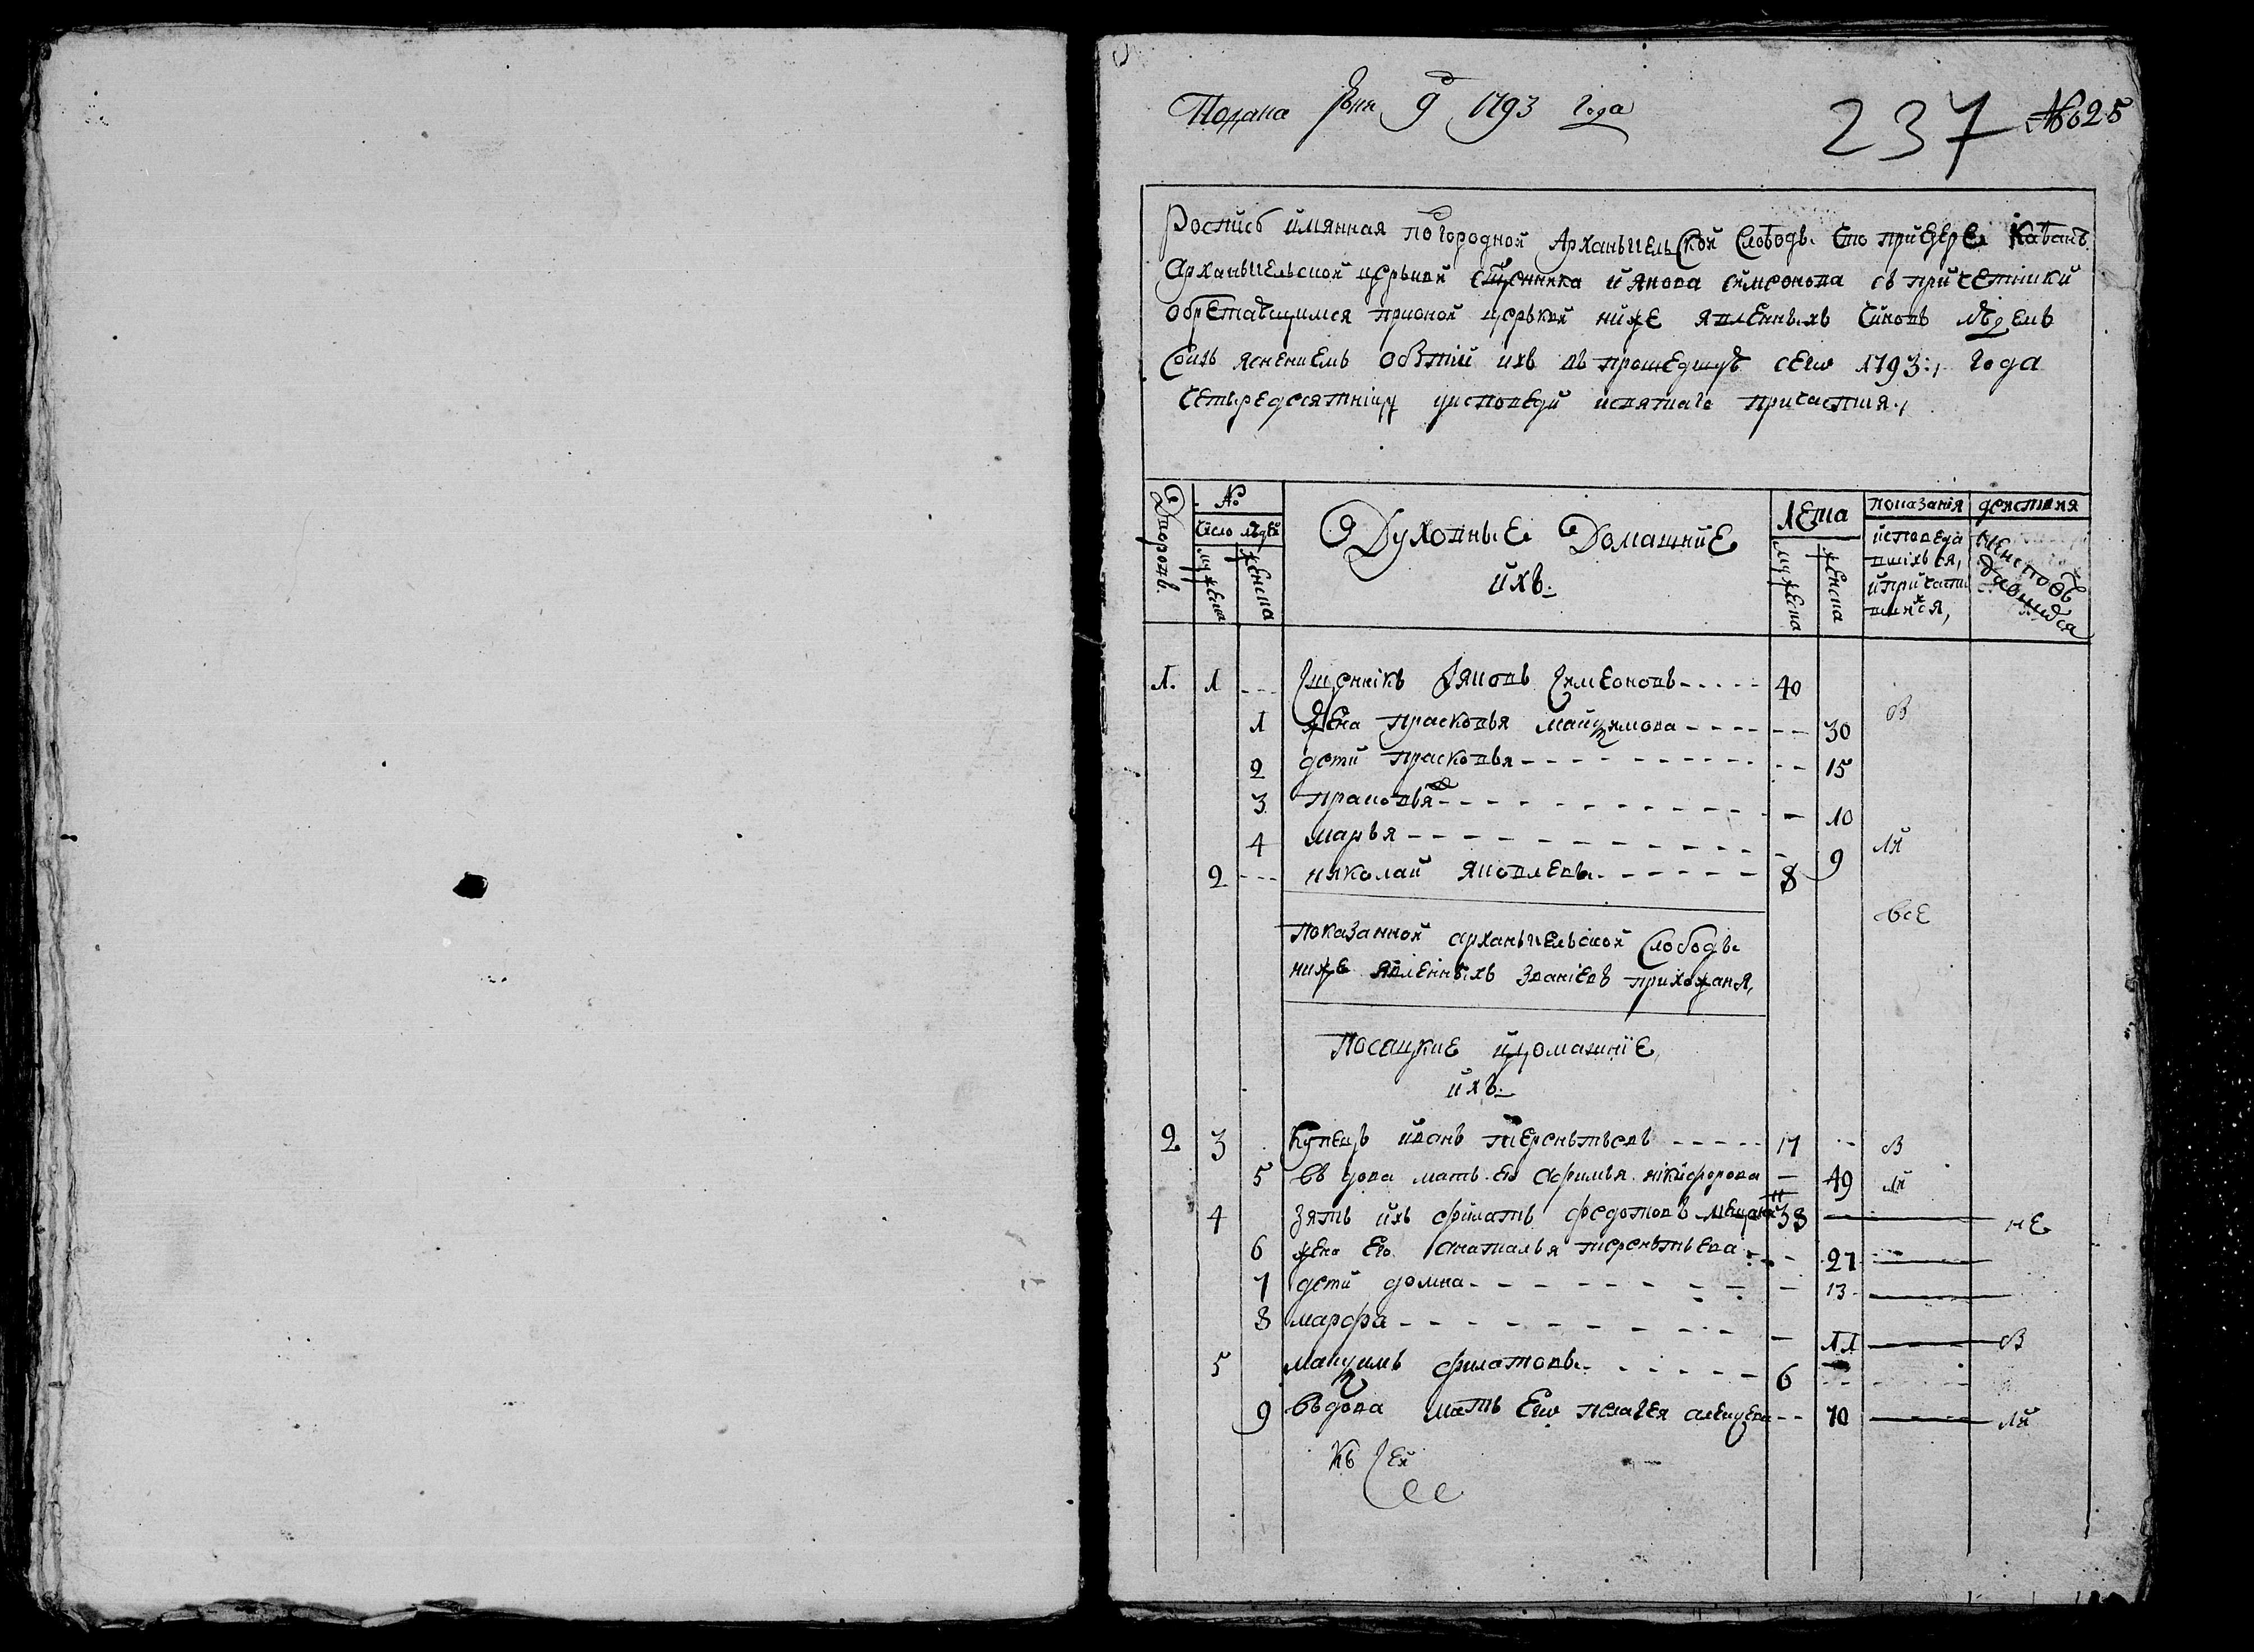 Подана 9 1793 года
237 №25
Роспись имянная пригородной Архангельской слободы что при езере Кабанѣ
Архангельской церькви священника Иякова Симеонова съ причетники
обретающимся при оной церькви ниже явленныхъ чиновъ людемъ
со изъяснениемъ бытии ихъ въ прошедшую сего 1793: года
четыредесятницу у исповеди и святаго причастия,
Дворовъ.
№
число людей
мужеска
женска
Духовные Домашние
ихъ.
лета
мужеска
женска
показания действия
исповедавшихъся, и причастившихся,
не исповедавшихся
1. 1 Священникъ Ияковъ Симеоновъ 40
1 Жена Прасковья Максимова 30
2 дети Прасковья 15
3 Прасковья 10
4 Марья 9
2 Николай Яковлевы 8
бы
ли
все
показанной Архангельской слободы
ниже явленныхъ званиевъ прихожаня,
Посацкие и домашние
ихъ.
2 3 Купецъ Иванъ Тереньтьевъ 17 бы
5 вдова мать ево Афимья Никифорова 49 ли
4 зять ихъ Филатъ Федотовъ 38 не
6 жена ево Анаталья Тереньтьева 27
7 дети Домна 13
8 Марфа 11 бы
5 Максимъ Филатовы 6
9 вдова мать ево Пелагея Алексеева 70 ли
Къ сей